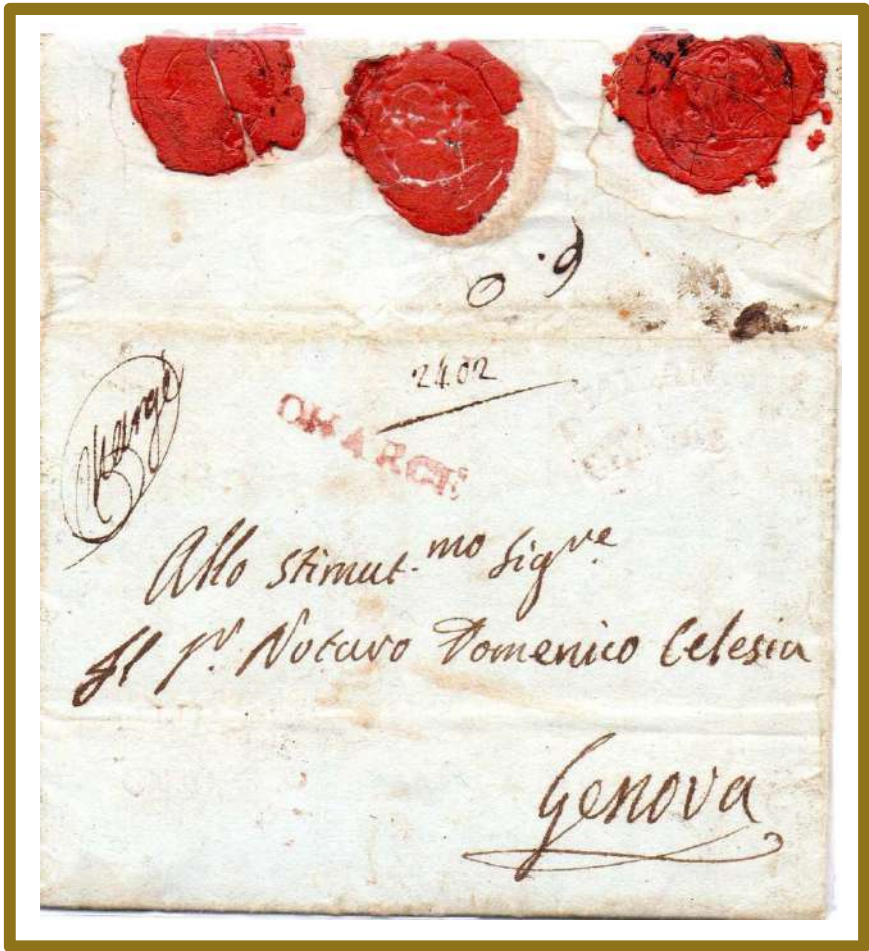 6.0
24.02
CHARGÉ
Chargé
Allo Stimat.mo Sigre
Il Sr. Notaro Domenico Celesia
Genova